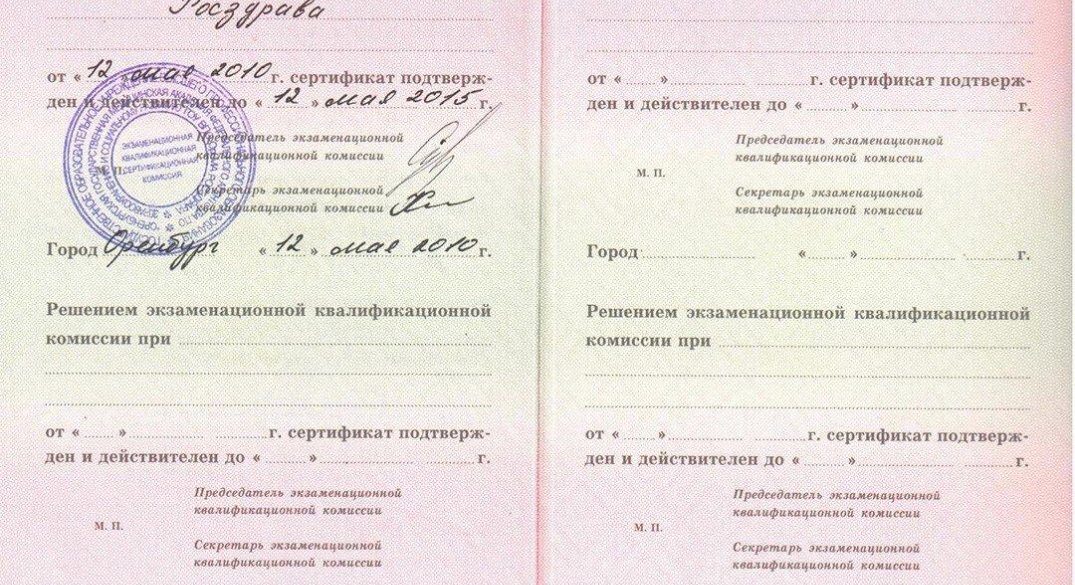 Росздрава
от « 12 » мая 2010 г. сертификат подтверж-
ден и действителен до « 12 » мая 2015 г.
Председатель экзаменационной
квалификационной комиссии
М. П.
Секретарь экзаменационной
квалификационной комиссии
ЭКЗАМЕНАЦИОННАЯ
КВАЛИФИКАЦИОННАЯ
СЕРТИФИКАЦИОННАЯ
КОМИССИЯ
Город Оренбург « 12 » мая 2010 г.
Решением экзаменационной квалификационной
комиссии при
от « » г. сертификат подтверж-
ден и действителен до « » г.
Председатель экзаменационной
квалификационной комиссии
М. П.
Секретарь экзаменационной
квалификационной комиссии
от « » г. сертификат подтверж-
ден и действителен до « » г.
Председатель экзаменационной
квалификационной комиссии
М. П.
Секретарь экзаменационной
квалификационной комиссии
Город « » г.
Решением экзаменационной квалификационной
комиссии при
от « » г. сертификат подтверж-
ден и действителен до « » г.
Председатель экзаменационной
квалификационной комиссии
М. П.
Секретарь экзаменационной
квалификационной комиссии